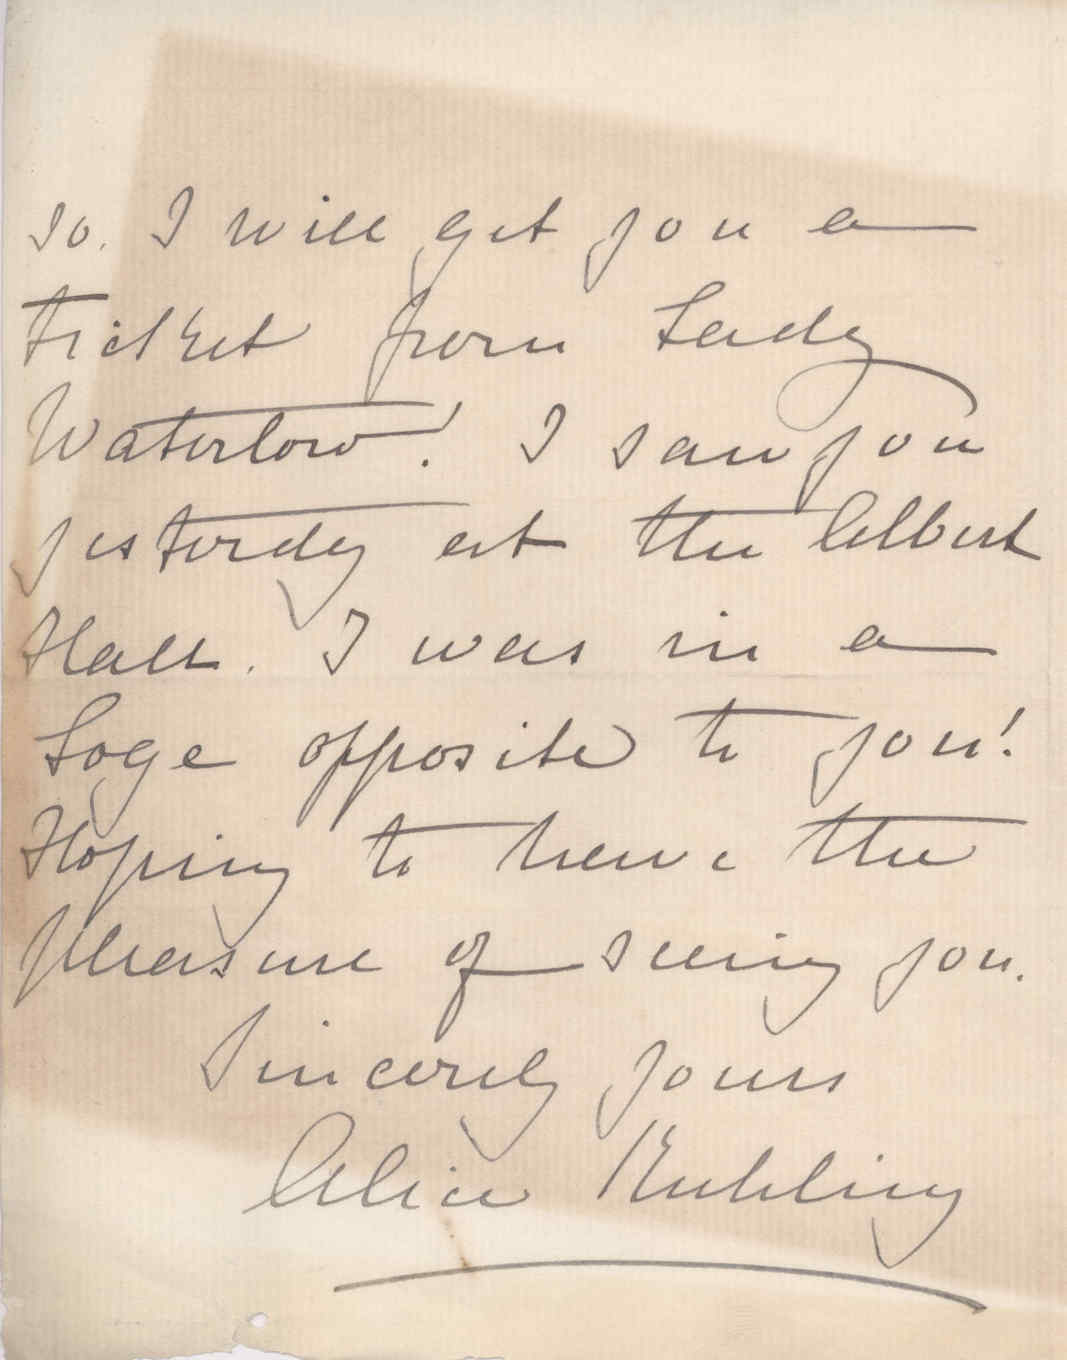 so. I will get you a
ticket from Lady
Waterlow! I saw you
yesterday at the Albert
Hall. I was in a
Loge opposite to you!
Hoping to have the
pleasure of seeing you.
Sincerely yours
Alice